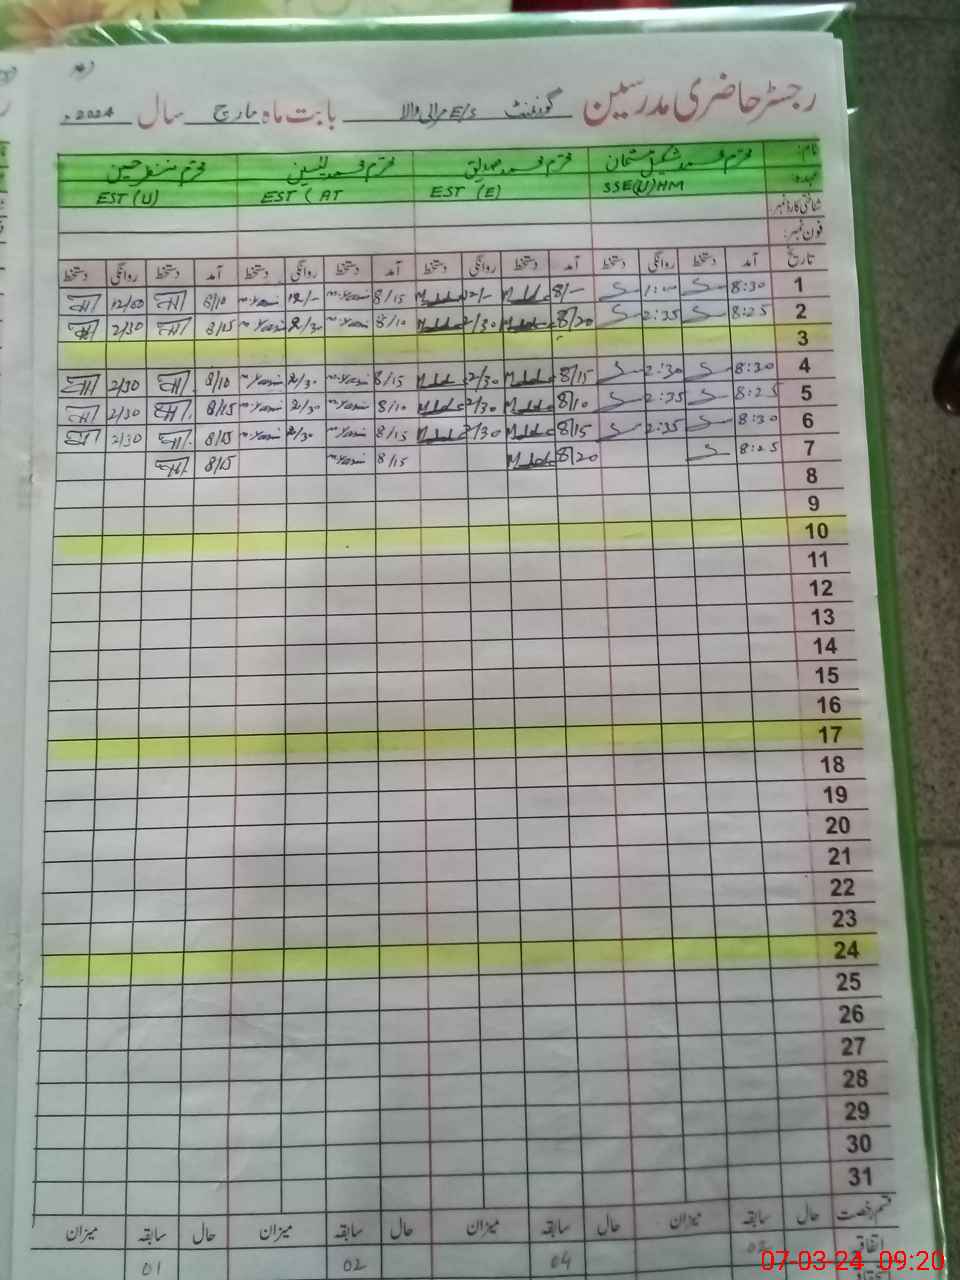 رجسٹر حاضری مدرسین گورنمنٹ E/S مرالی والا بابت ماہ مارچ سال 2024ء
نام: محترم محمد شکیل محترم محمد صدیق محترم محمد یٰسین محترم
عہدہ: SSE(U)HM EST (E) EST (AT EST (U)
شناختی کارڈ نمبر:
فون نمبر:
تاریخ آمد دستخط روانگی دستخط آمد دستخط روانگی دستخط آمد دستخط روانگی دستخط آمد دستخط روانگی دستخط
1 8:30 1:00 8/- 12/- 8/15 m.Yasin 12/- m.Yasin 8/10 12/00
2 8:25 2:35 8/20 2/30 8/10 m.Yasin 2/30 m.Yasin 8/15 2/30
3
4 8:30 2:30 8/15 2/30 8/15 m.Yasin 2/30 m.Yasin 8/10 2/30
5 8:25 2:35 8/10 2/30 8/10 m.Yasin 2/30 m.Yasin 8/15 2/30
6 8:30 2:35 8/15 2/30 8/15 m.Yasin 2/30 m.Yasin 8/15 2/30
7 8:25 8/20 8/15 m.Yasin 8/15
8
9
10
11
12
13
14
15
16
17
18
19
20
21
22
23
24
25
26
27
28
29
30
31
قسم رخصت حال سابقہ میزان حال سابقہ میزان حال سابقہ میزان حال سابقہ میزان
اتفاقیہ 04 02 01
07-03-24 09:20